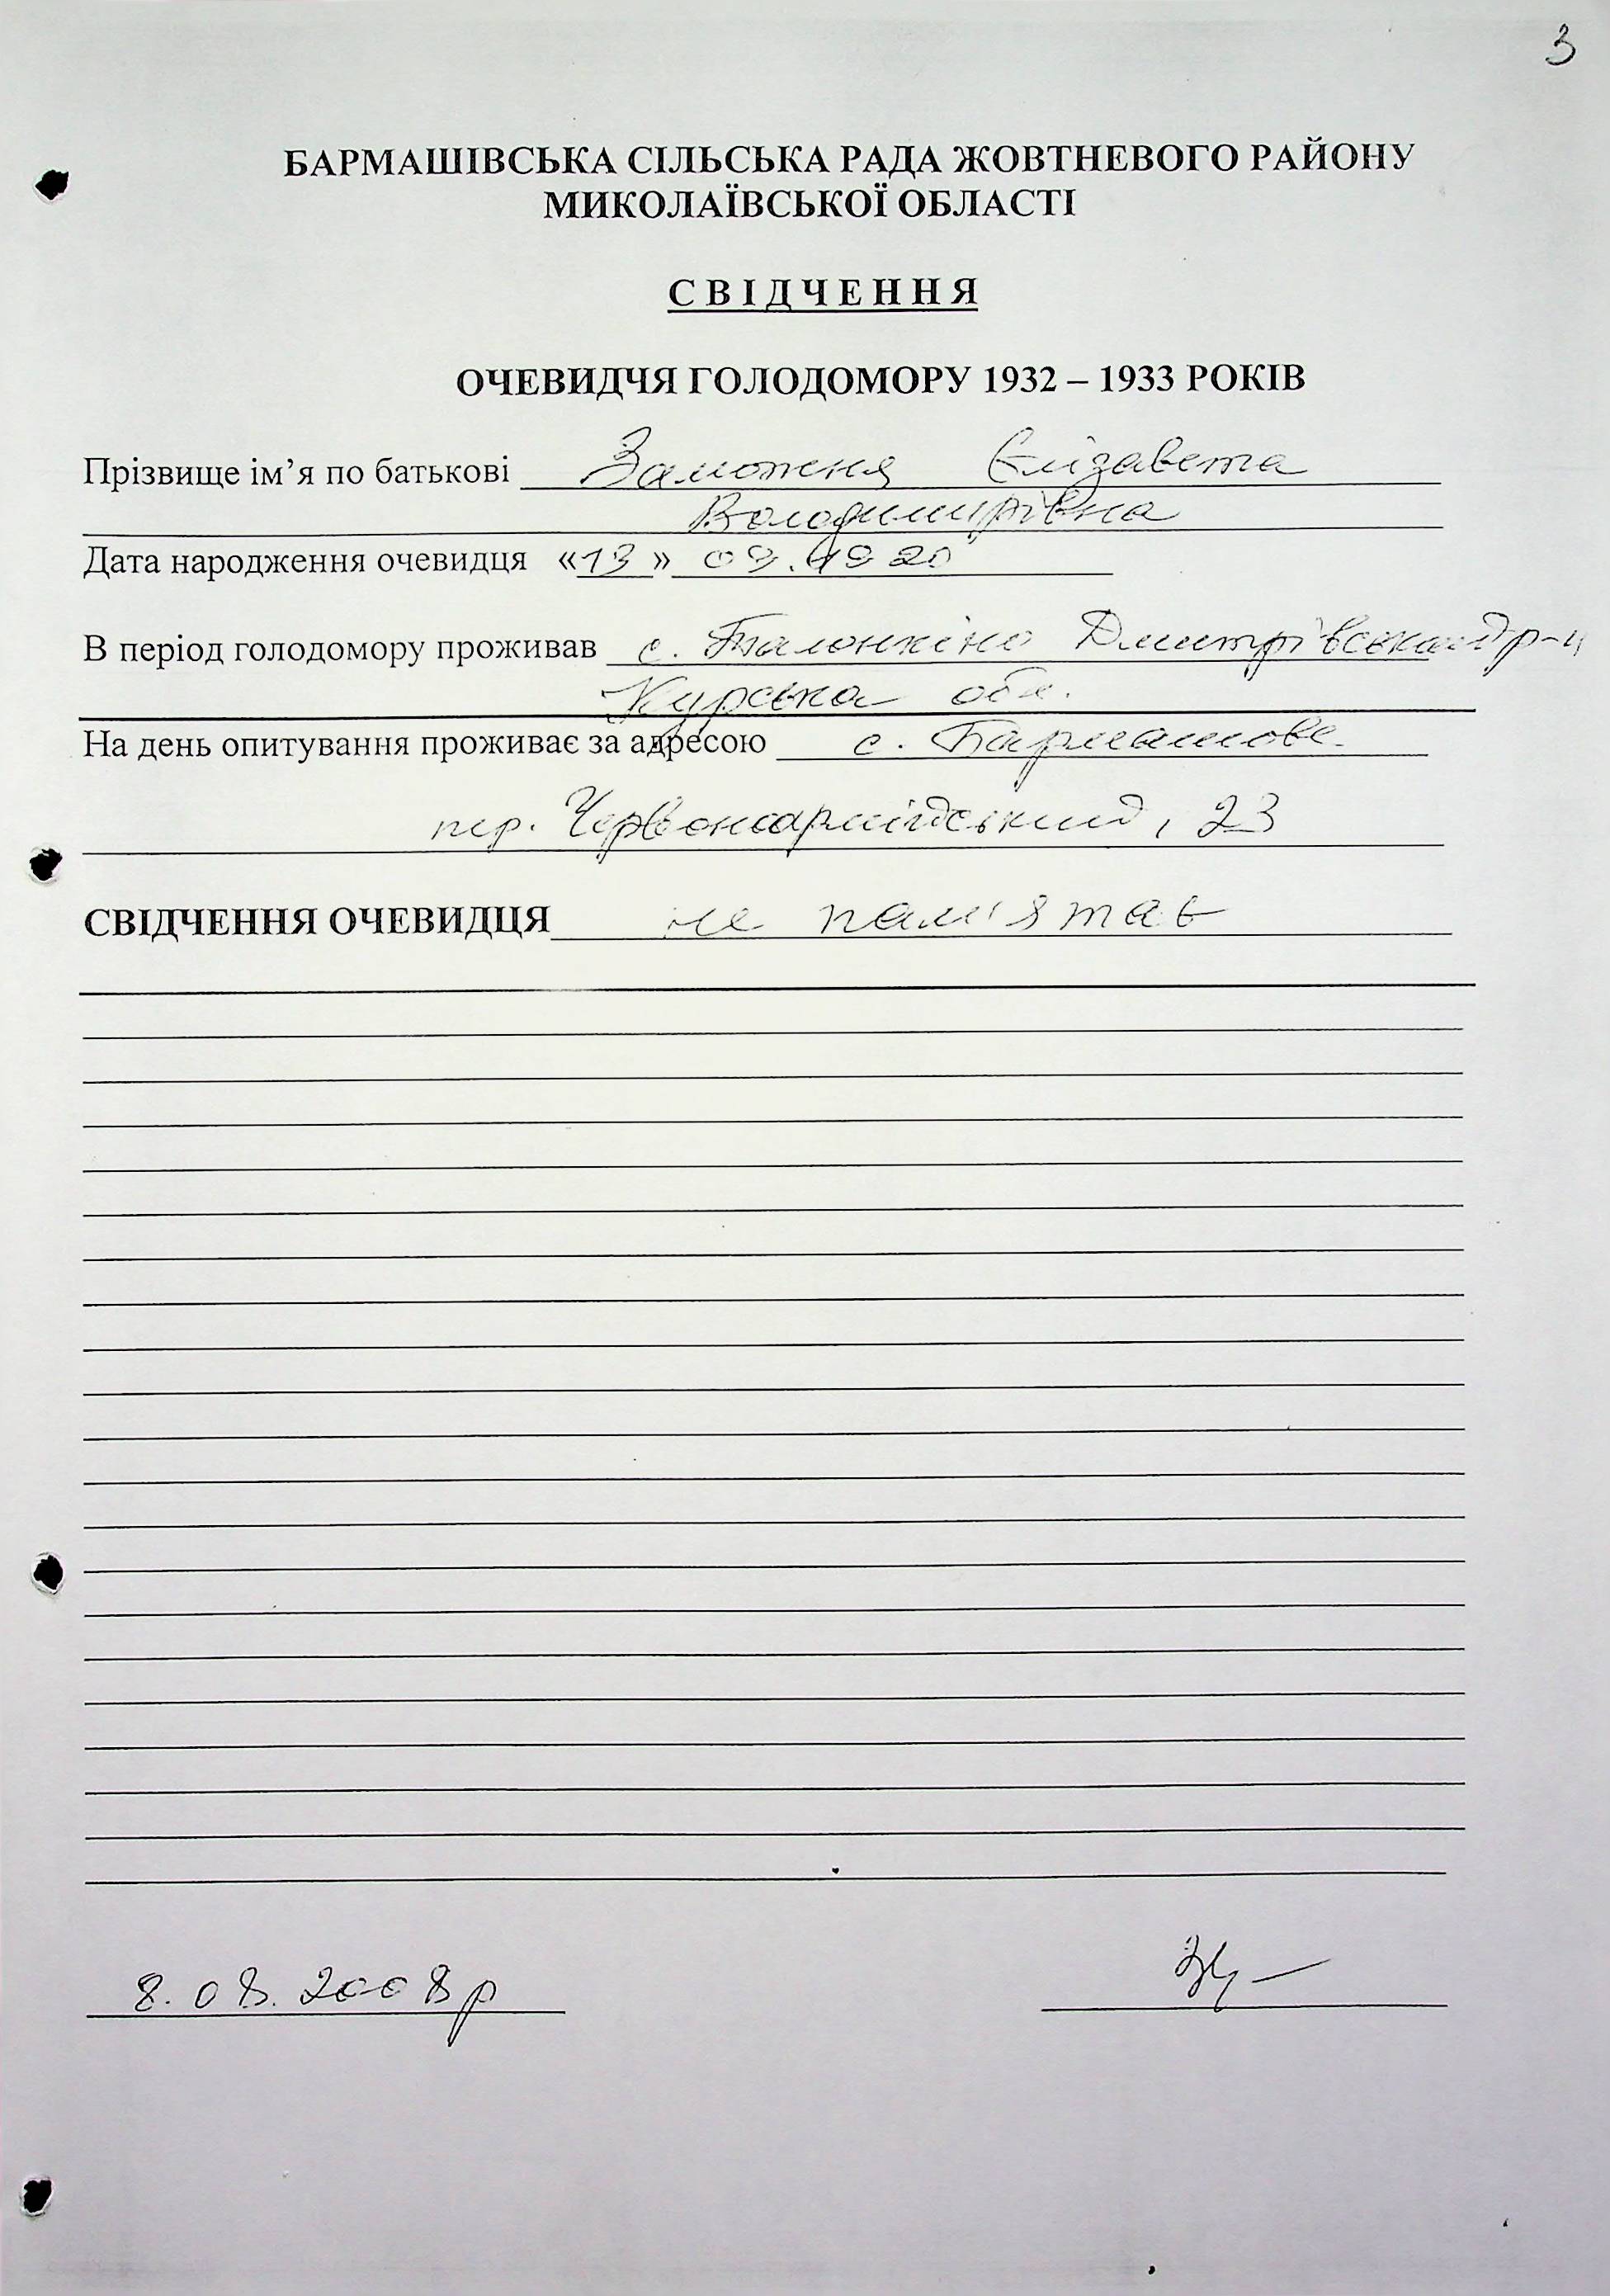 3
БАРМАШІВСЬКА СІЛЬСЬКА РАДА ЖОВТНЕВОГО РАЙОНУ
МИКОЛАЇВСЬКОЇ ОБЛАСТІ
СВІДЧЕННЯ
ОЧЕВИДЧЯ ГОЛОДОМОРУ 1932 – 1933 РОКІВ
Прізвище ім’я по батькові Заможня Єлізавета
Володимирівна
Дата народження очевидця «13» 09.1920
В період голодомору проживав с. Дмитрівський р-н
Курська обл.
На день опитування проживає за адресою с. Бармашове
пер. Червоноармійський, 23
СВІДЧЕННЯ ОЧЕВИДЦЯ не пам'ятає
8.08.2008р